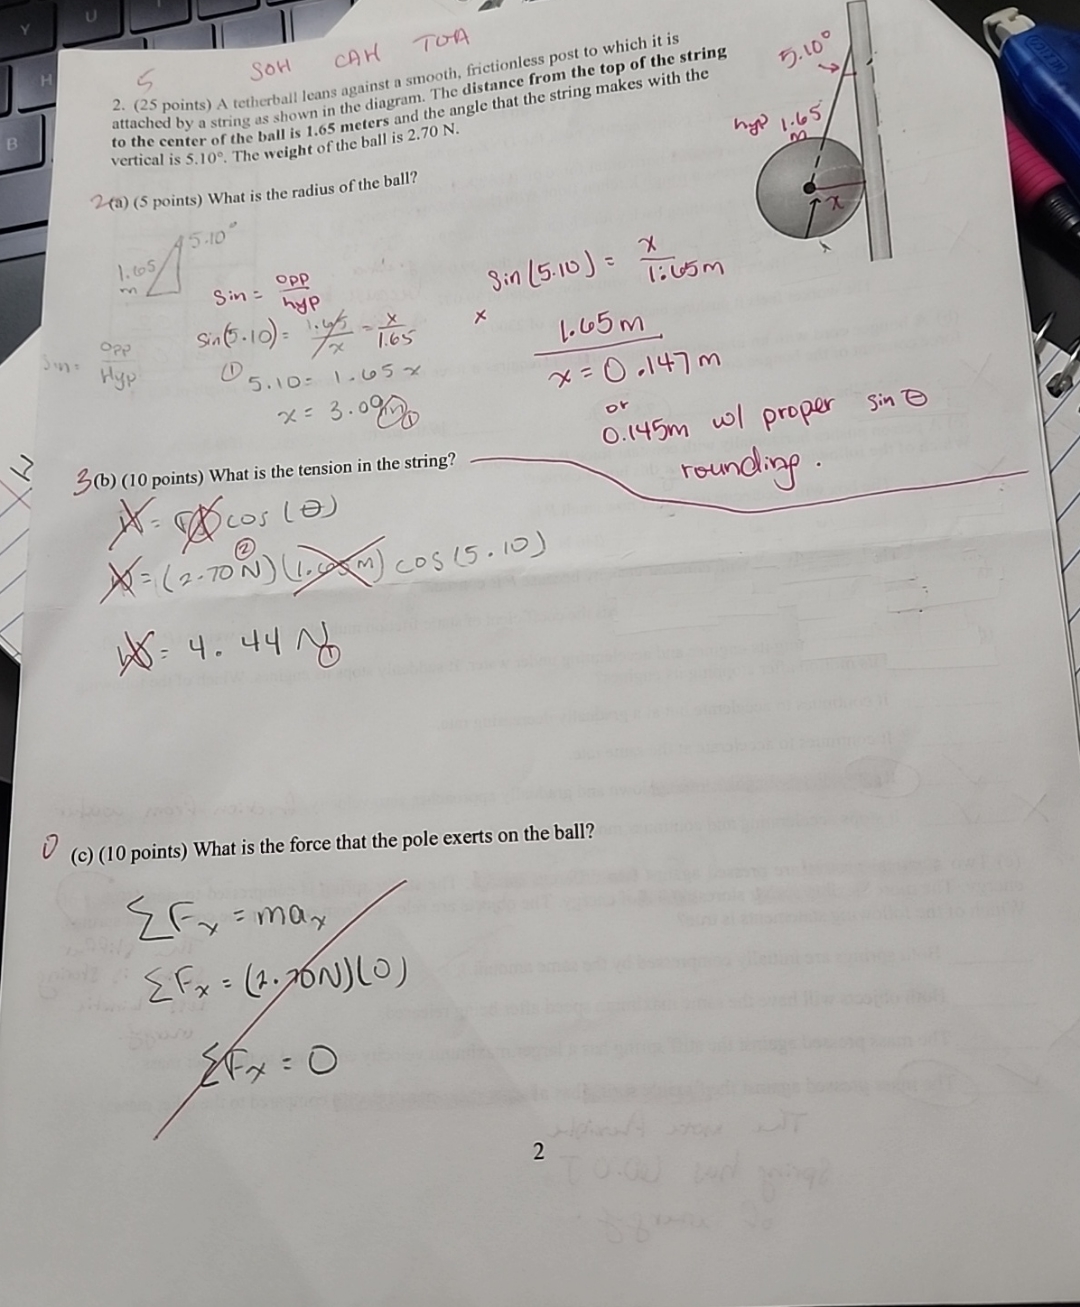 SOH CAH TOA
5
2. (25 points) A tetherball leans against a smooth, frictionless post to which it is
attached by a string as shown in the diagram. The distance from the top of the string
to the center of the ball is 1.65 meters and the angle that the string makes with the
vertical is 5.10°. The weight of the ball is 2.70 N.
5.10°
hyp 1.65
m
x
2(a) (5 points) What is the radius of the ball?
5.10°
1.65
m
Sin = opp
hyp
sin(5.10) = 1.65 = x
x 1.65
Opp
Hyp
① 5.10 = 1.65x
x = 3.09m ①
Sin (5.10) = x
1.65m
x
1.65m
x = 0.147m
or
0.145m w/ proper sin θ
rounding.
3(b) (10 points) What is the tension in the string?
cos (θ)
②
= (2.70N)(1.65m) cos (5.10)
= 4.44 N ①
0 (c) (10 points) What is the force that the pole exerts on the ball?
ΣFx = max
ΣFx = (2.70N)(0)
ΣFx = 0
2